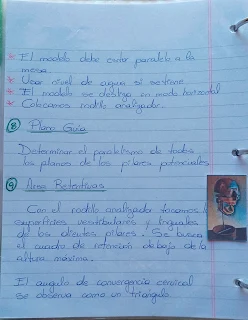 * El modelo debe estar paralelo a la
mesa.
* Usar nivel de agua si se tiene
* El modelo se desliga en modo horizontal
* Colocamos rodillo analizador.
⑧ Plano Guía
Determinar el paralelismo de todos
los planos de los pilares potenciales
⑨ Area Retentivas
Con el rodillo analizador tocamos l
superficies vestibulares y linguales
de los dientes pilares. Se busca
el cuadro de retención debajo de la
altura máxima.
El angulo de convergencia cervical
se observa como un triangulo.